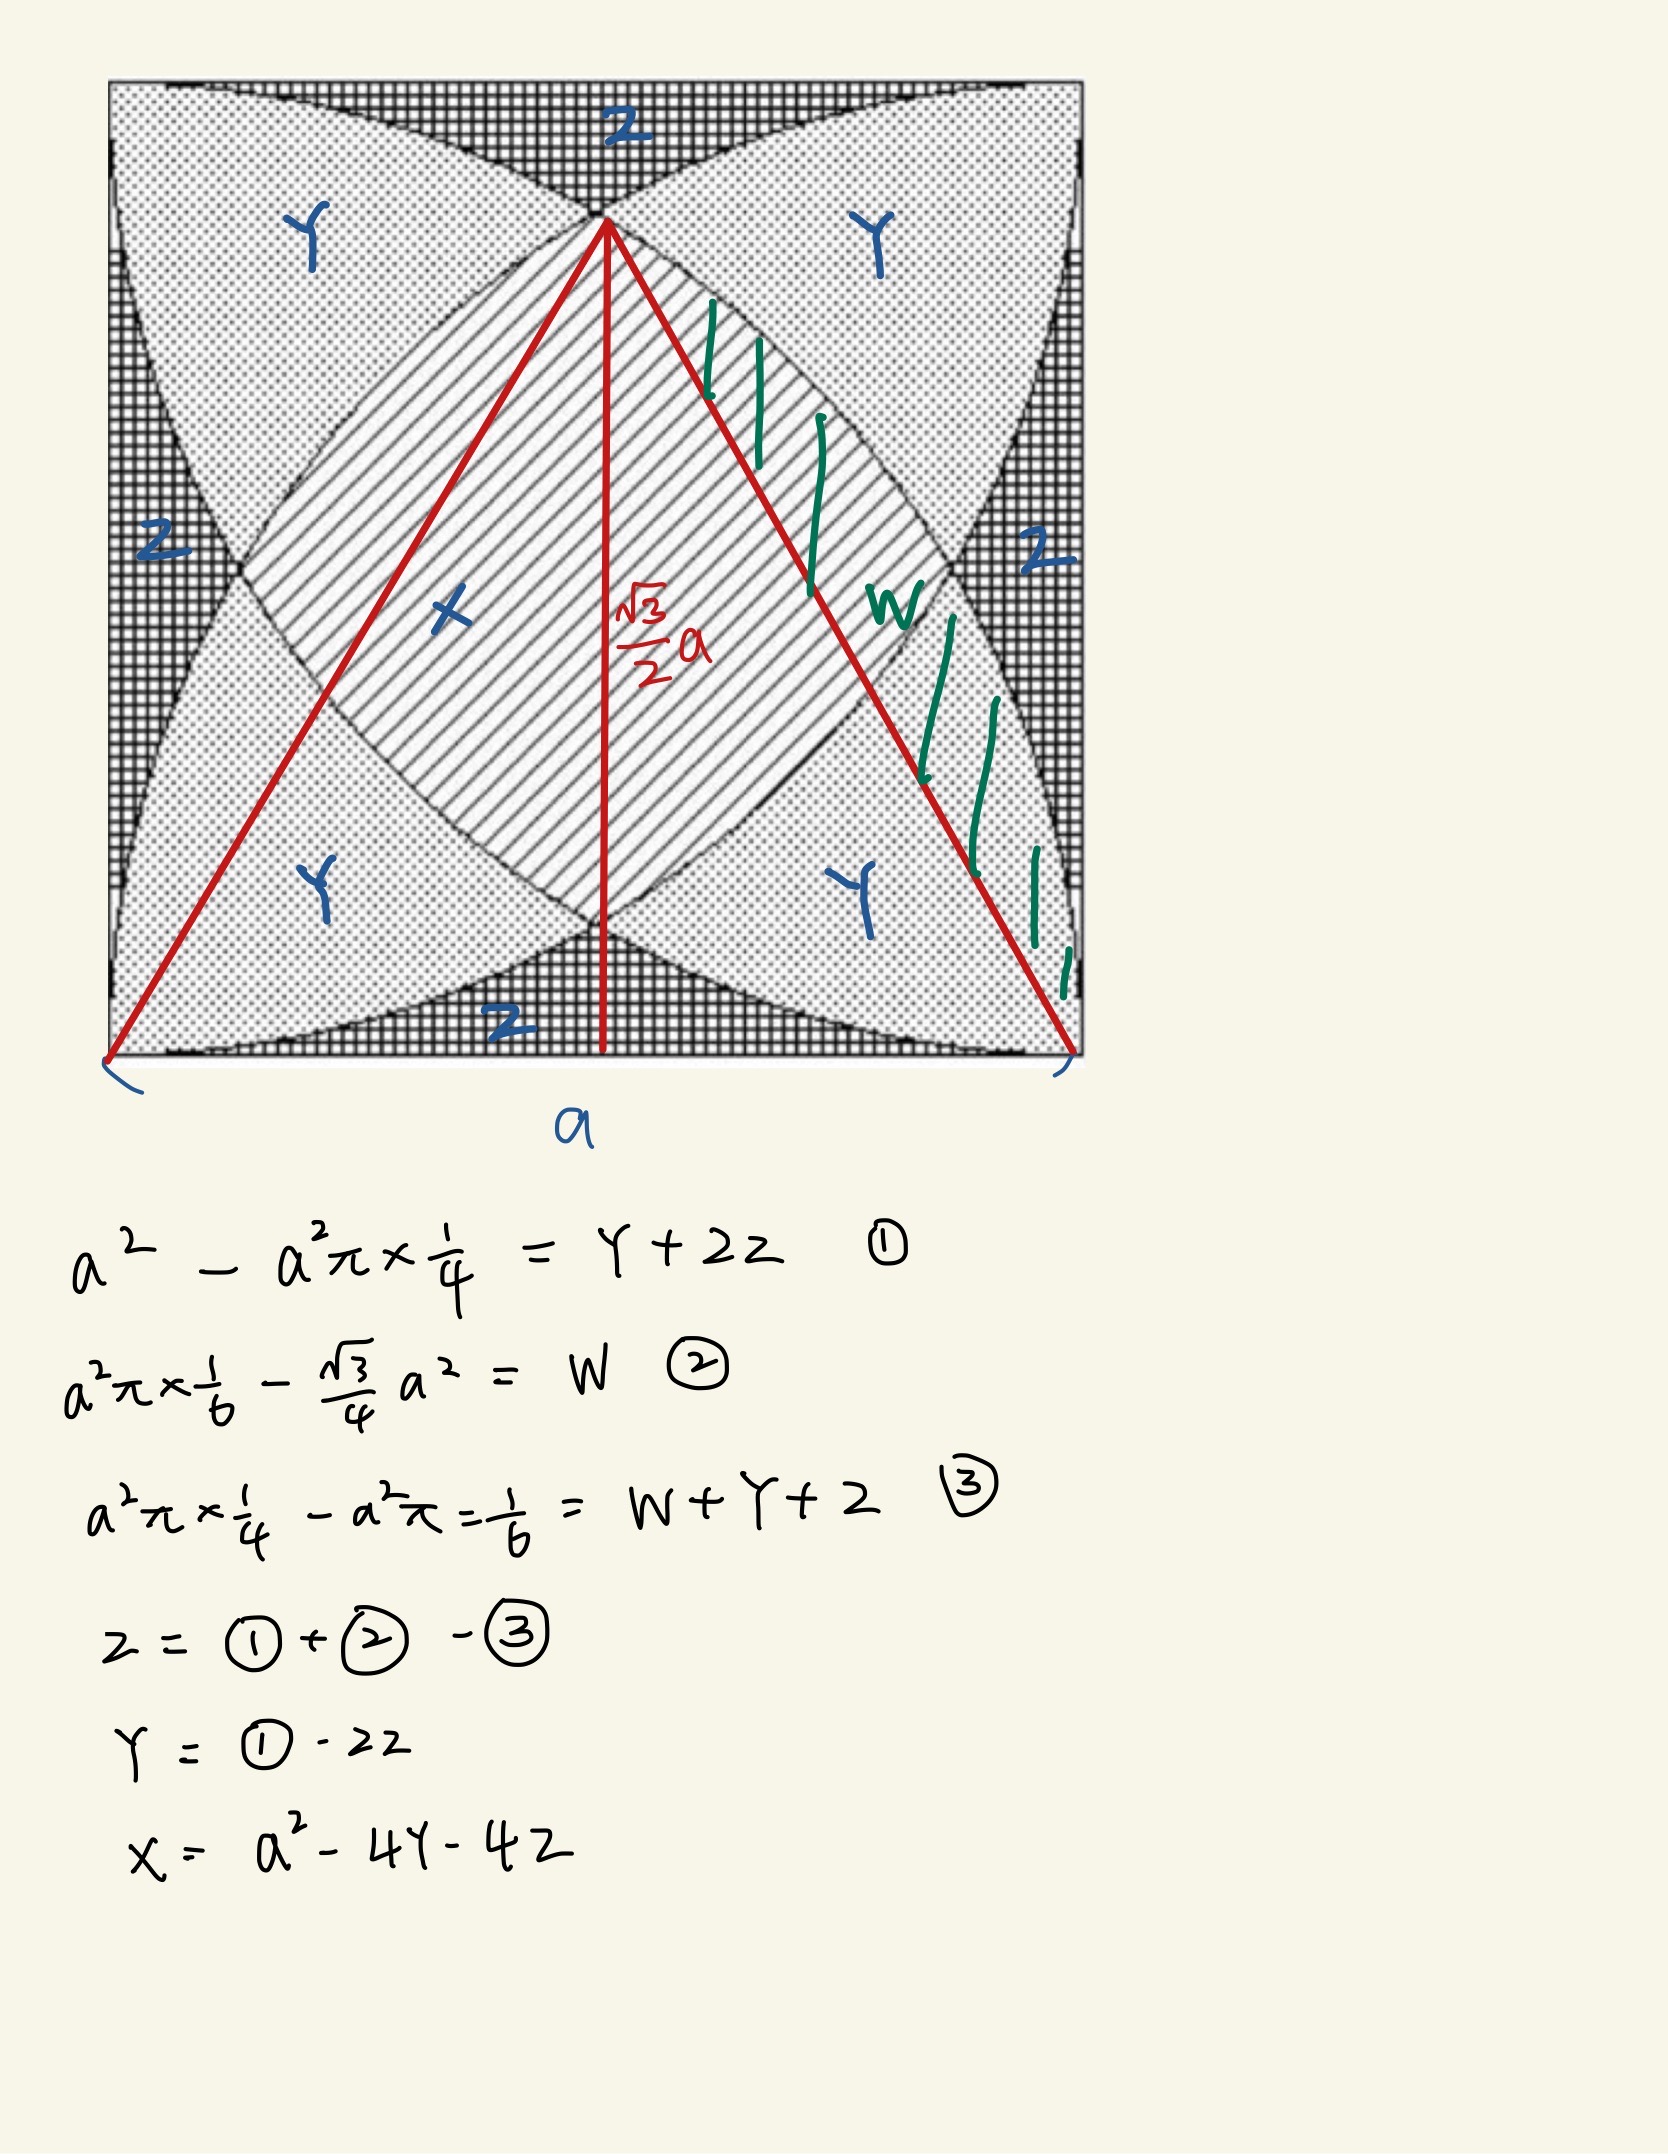 Z
Y Y
Z Z
W
X √3/2 a
Y Y
Z
a
a² - a²π × 1/4 = Y + 2Z ①
a²π × 1/6 - √3/4 a² = W ②
a²π × 1/4 - a²π = 1/6 = W + Y + Z ③
Z = ① + ② - ③
Y = ① - 2Z
X = a² - 4Y - 4Z